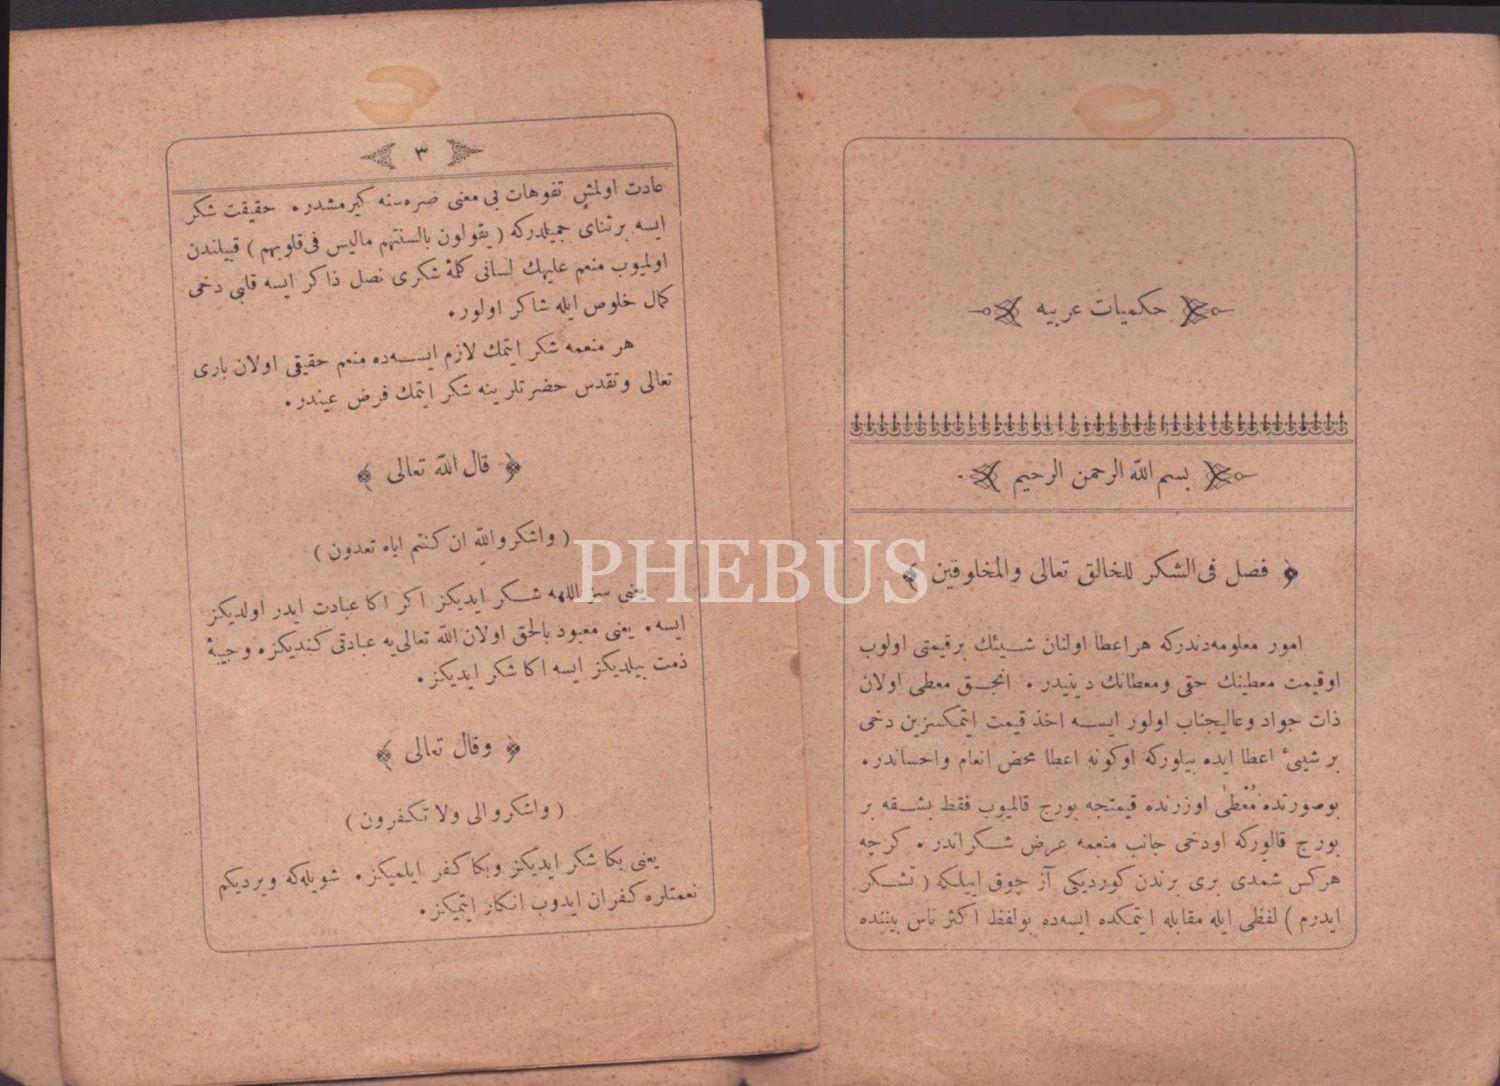 حكميات عربيه
بسم الله الرحمن الرحيم
فصل فى الشكر للخالق تعالى والمخلوقين
امور معلومه‌دندركه هر اعطا اولنان شيئك بر قيمتى اولوب
اوقيمت معطينك حقى ومعطانك دينيدر. انجق معطى اولان
ذات جواد وعاليجناب اولور ايسه اخذ قيمت ايتمكسزين دخى
بر شيئ اعطا ايده بيلوركه اوكونه اعطا محض انعام واحساندر.
بوصورتده مُعْطٰى اوزرنده قيمتجه بورج قالميوب فقط بشقه بر
بورج قالوركه اودخى جانب منعمه عرض شكراندر. كرچه
هركس شمدى برى برندن كورديكى آز چوق ايلكه ( تشكر
ايدرم ) لفظى ايله مقابله ايتمكده ايسه‌ده بولفظ اكثر ناس بيننده
٣
عادت اولمش تفوهات بى معنى صره‌سنه كيرمشدر. حقيقت شكر
ايسه بر ثناى جميلدركه ( يقولون بالسنتهم ماليس فى قلوبهم ) قبيلندن
اولميوب منعم عليهك لسانى كلمۀ شكرى نصل ذاكر ايسه قلبى دخى
كمال خلوص ايله شاكر اولور.
هر منعمه شكر ايتمك لازم ايسه‌ده منعم حقيقى اولان بارى
تعالى وتقدس حضرتلرينه شكر ايتمك فرض عيندر.
قال الله تعالى
( واشكروالله ان كنتم اياه تعدون )
يعنى سز اللهه شكر ايديكز اكر اكا عبادت ايدر اولديكز
ايسه. يعنى معبود بالحق اولان الله تعالى‌يه عبادتى كنديكزه وجيبۀ
ذمت بيلديكز ايسه اكا شكر ايديكز.
وقال تعالى
( واشكروالى ولا تكفرون )
يعنى بكا شكر ايديكز وبكا كفر ايلميكز. شويله‌كه ويرديكم
نعمتلره كفران ايدوب انكار ايتميكز.
PHEBUS